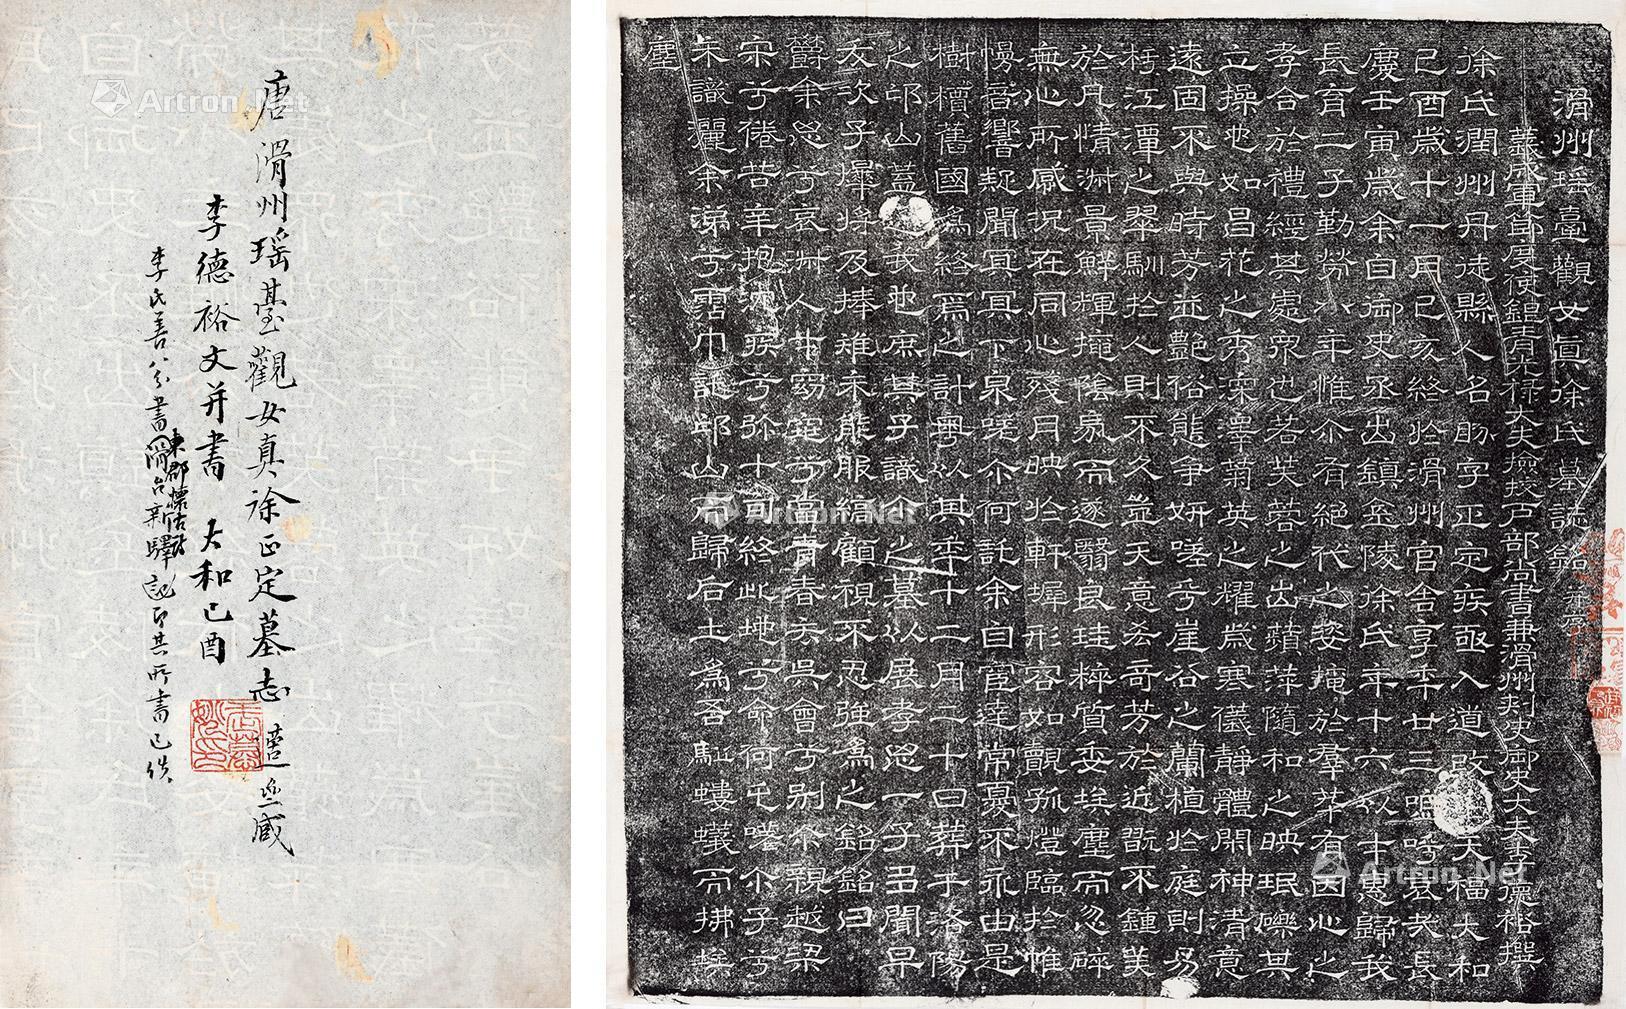 唐滑州瑤臺觀女真徐正定墓志
李德裕文并書 大和己酉
李氏善八分書
東郡懷古
新驛記即其所書已佚
滑州瑤臺觀女真徐氏墓誌銘并序
義成軍節度使銀青光祿大夫撿挍戶部尚書兼滑州刺史御史大夫李德裕撰
徐氏潤州丹徒縣人名盼字正定疾亟入道改名天福大和
己酉歲十一月己亥終於滑州官舍享年廿三嗚呼哀哉長
慶壬寅歲余自御史丞出鎮金陵徐氏年十六以才惠歸我
長育二子勤勞八年惟爾有絕代之姿掩於羣萃有因心之
孝合於禮經其處眾也若芙蓉之出蘋萍隨和之映珉礫其
立操也如昌花之秀深澤菊英之耀歲寒儀靜體閑神清意
遠固不與時芳並艷俗態爭妍嗟乎崖谷之蘭植於庭則易
朽江潭之翠馴於人則不久豈天意希奇芳於近翫不鍾美
於凡情淑景鮮輝掩陰泉而遂翳良珪粹質委埃塵而忽碎
無心所感況在同心殘月映於軒墀形容如覿孤燈臨於帷
幔音響疑聞冥冥下泉嗟爾何託余自宦達常憂不永由是
樹檟舊國為終焉之計粵以其年十二月二十日葬于洛陽
之邙山蓋近我也庶其子識爾之墓以展孝思一子多聞早
夭次子燁將及捧雉未能服縞顧視不忍強為之銘銘曰
鬱余思兮哀淑人才窈窕兮當青春去吳會兮別爾親越梁
宋兮倦苦辛抱沉疾兮彌十旬終此地兮命何屯嗟爾子兮
未識灑余涕兮霑巾誌邙山而歸后土為吾驅螻蟻而拂埃
塵
Artron.Net
Artron.Net
Artron.Net